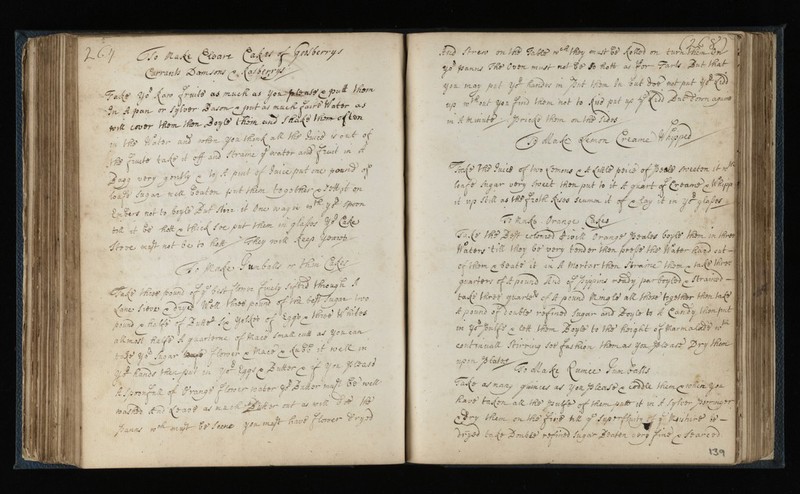 264
To Make Cleare Cakes of Gosberrys
Currants Damsons & Rasberrys
Take ye Raw fruite as much as you please & putt them
In A pan or Sylver Bason & put as much faire Water as
will cover them then Boyle them and them often
in the Water and when you think all the Juice is out of
the fruite take it off and Straine ye water and fruit in A
Bagg very gently & to A pint of Juice put one pound of
loafe Sugar well beaten put them together & sett it on
Embers not to boyle But Stirr it One way with ye spoon
till it be thick So put them in glasses ye Cake
Stove must not be to hott They will keep
To Make Jumbolls or thin Cakes
Take three pound of ye best flower finely sifted through A
Lawne Sieve & dryed Well three pound of the best Sugar two
pound & halfe of Butter Six yolkes of Eggs & three Whites
allmost halfe A quarterne of Mace Small cutt as you can
take ye Sugar flower & Mace & Rubb it well in
ye hands then put in ye Eggs & Butter & if you please
A Spoonfull of Orange flower water ye Butter must be well
washed And leave as much Butter out as will the
panns wch must be you must have flower dryed
And Strew on the Table wch they must be Rolled on turn them on
ye panns The Oven must not be So hott as for Tarts But that
you may put ye hands in put them in but doe not put ye Lidd
up without you find them not to Rise put up ye Lidd And down againe
in A Minute Pricke them on the Sides
To Make Lemon Creame Whipped
Take the Juice of two Lemons & A little peice of Peele Sweeten it wth
loafe Sugar very sweet then put to it A quart of Creame & Whipp
it up Still as the froth Rises Scumm it of & lay it in ye glasses
To Make Orange Cakes
Take the Best coloured Civill Orange Peeles boyle them in three
Waters till they be very tender then the Water and cut
of them & beate it in A Mortar then Straine them & take three
quarters of A pound And of Pippins ready parboyled & Strained
take three quarters of A pound Mingle all these together then take
A pound of double refined Sugar and Boyle to A Candy then put
in ye Pulpe & lett them Boyle to the height of Marmalade wth
continuall Stirring So fashion them as you please Dry them
upon Plates
To Make Quince Jumballs
Take as many quinces as you please & Coddle them & when you
have taken all the Pulpe of them putt it in A Sylver
& Dry them on the fire till ye Superfluity of ye Moisture be
dryed take Double refined Sugar Beaten very fine & Searced
139